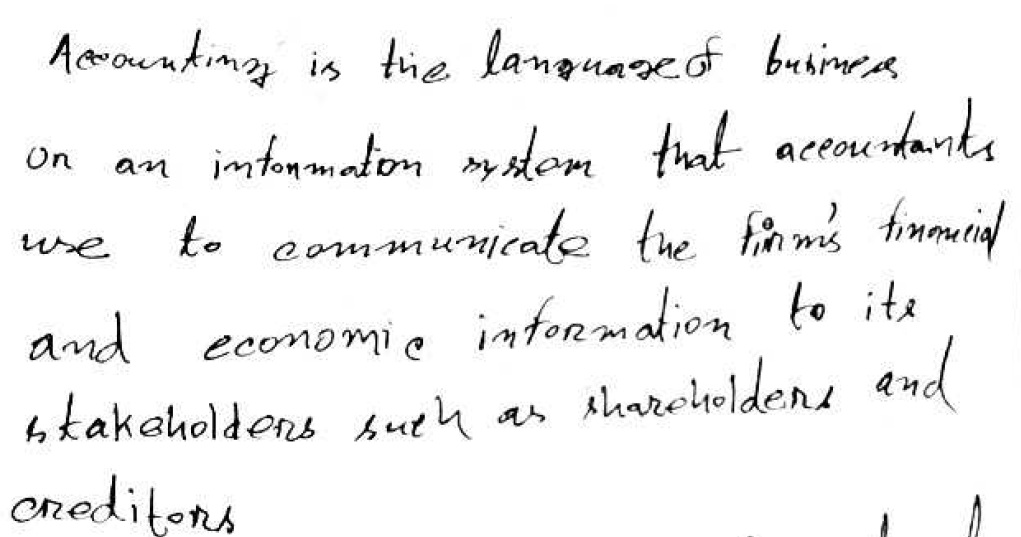 Accounting is the language of business
or an information system that accountants
use to communicate the firm's financial
and economic information to its
stakeholders such as shareholders and
creditors